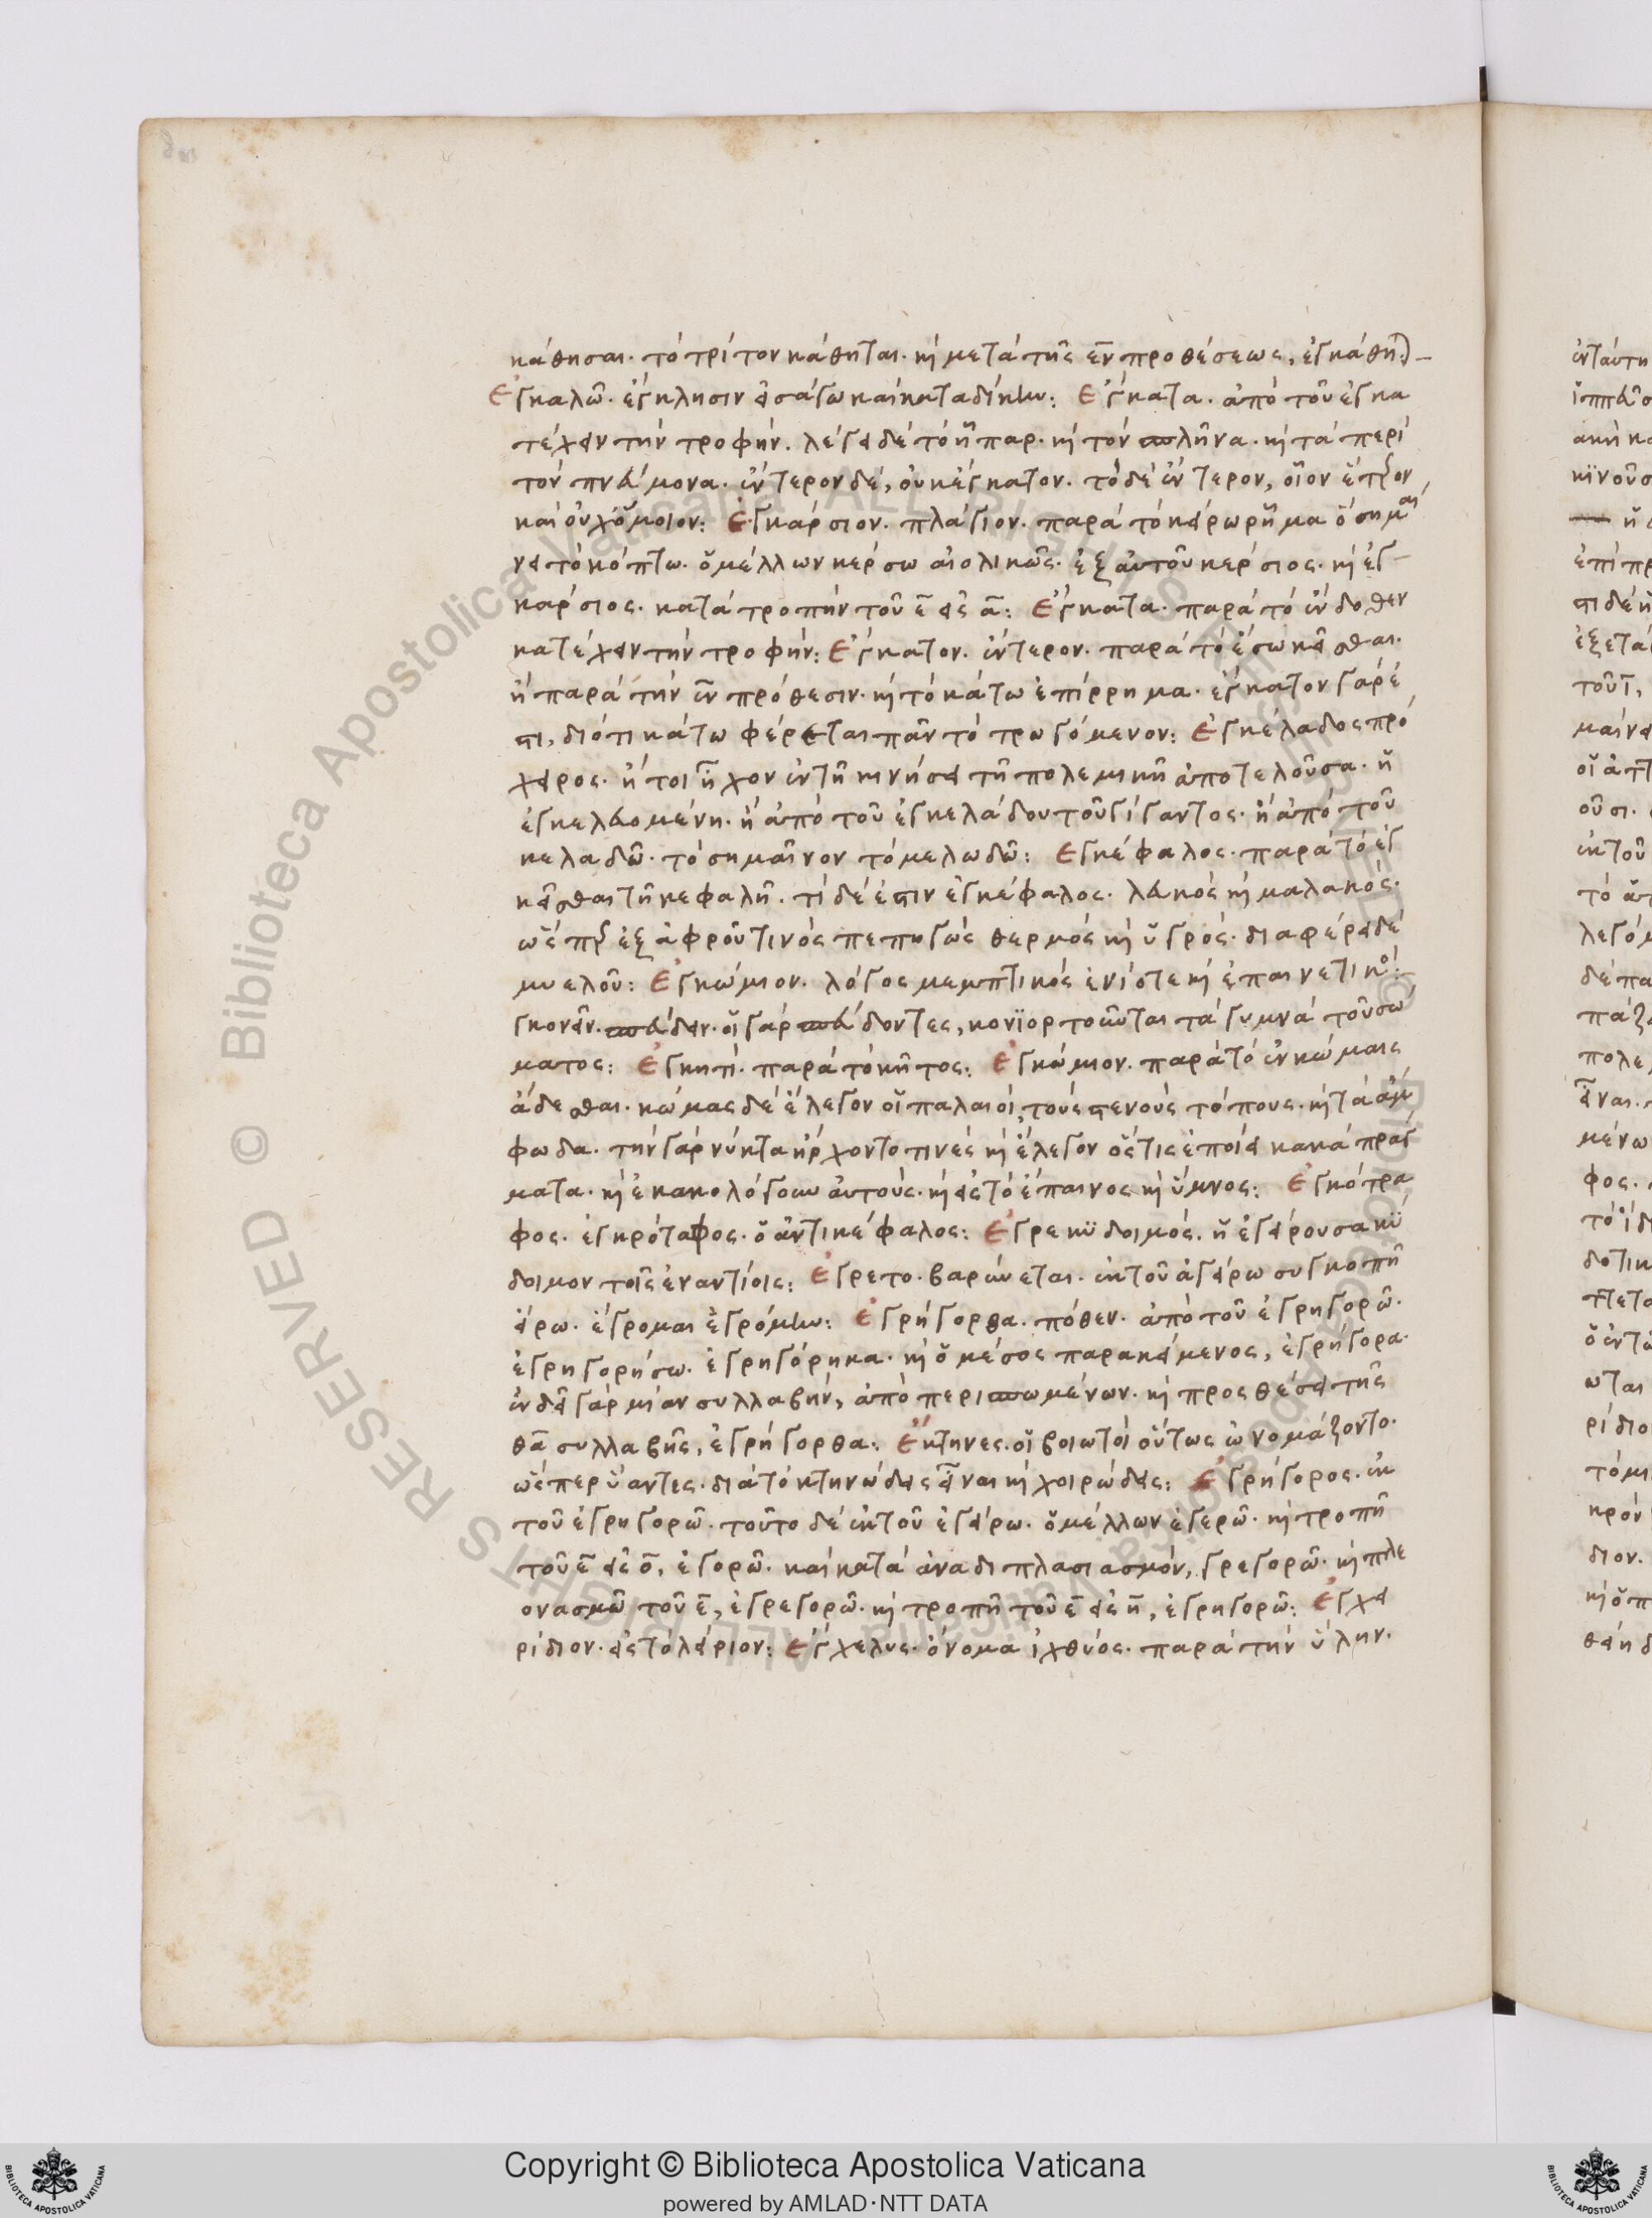 κάθησαι· τὸ τρίτον κάθηται· καὶ μετὰ τῆς ἐν προθέσεως, ἐγκάθη
Ἐγκαλῶ· ἔγκλησιν εἰσάγω καὶ καταδίκην: Ἔγκατα· ἀπὸ τοῦ ἐγκα
τέχειν τὴν τροφήν· λέγει δὲ τὸ ἧπαρ· καὶ τὸν σπλῆνα· καὶ τὰ περὶ
τὸν πνεύμονα· ἔντερον δὲ, οὐκ ἔγκατον· τὸ δὲ ἔντερον, οἷον ἕτερον
καὶ οὐχ ὅμοιον: Ἐγκάρσιον· πλάγιον· παρὰ τὸ κείρω ῥῆμα ὃ σημαί
νει τὸ κόπτω· ὁ μέλλων κέρσω αἰολικῶς· ἐξ αὐτοῦ κέρσιος· καὶ ἐγ
κάρσιος· κατὰ τροπὴν τοῦ ε εἰς α: Ἔγκατα· παρὰ τὸ ἔνδοθεν
κατέχειν τὴν τροφήν: Ἔγκατον· ἔντερον· παρὰ τὸ ἔσω κεῖσθαι·
ἢ παρὰ τὴν ἐν πρόθεσιν· καὶ τὸ κάτω ἐπίρρημα· ἔγκατον γάρ ἐ
στι, διότι κάτω φέρεται πᾶν τὸ τρωγόμενον: Ἐγκέλαδος πρό
χειρος· ἤτοι ἦχον ἐν τῇ κινήσει τῇ πολεμικῇ ἀποτελοῦσα· ἢ
ἐγκελευομένη· ἢ ἀπὸ τοῦ ἐγκελάδου τοῦ γίγαντος· ἢ ἀπὸ τοῦ
κελαδῶ· τὸ σημαῖνον τὸ μελωδῶ: Ἐγκέφαλος· παρὰ τὸ ἐγ
κεῖσθαι τῇ κεφαλῇ· τί δέ ἐστιν ἐγκέφαλος· λευκὸς καὶ μαλακός·
ὥσπερ ἐξ ἀφροῦ τινὸς πεπηγὼς θερμὸς καὶ ὑγρός· διαφέρει δὲ
μυελοῦ: Ἐγκώμιον· λόγος μεμπτικὸς ἐνίοτε καὶ ἐπαινετικό:
γκονεῖν· σπεύδειν· οἱ γὰρ σπεύδοντες, κονιορτοῦνται τὰ γυμνὰ τοῦ σώ
ματος: Ἐγκητί· παρὰ τὸ κῆτος: Ἐγκώμιον· παρὰ τὸ ἐν κώμαις
ἄδεσθαι· κώμας δὲ ἔλεγον οἱ παλαιοὶ, τοὺς στενοὺς τόπους· καὶ τὰ ἄμ
φωδα· τὴν γὰρ νύκτα ἤρχοντο τινὲς καὶ ἔλεγον ὅστις ἐποίει κακὰ πράγ
ματα· καὶ ἐκακολόγουν αὐτούς· καὶ εἰς τὸ ἔπαινος καὶ ὕμνος: Ἐγκότρα
φος· ἐγκρόταφος· ὁ ἀντικέφαλος: Ἐγρεκύδοιμος· ἡ ἐγείρουσα κύ
δοιμον τοῖς ἐναντίοις: Ἔγρετο· βαρύνεται· ἐκ τοῦ ἐγείρω συγκοπῇ
ἔγρω· ἔγρομαι ἐγρόμην: Ἐγρήγορθα· πόθεν· ἀπὸ τοῦ ἐγρηγορῶ·
ἐγρηγορήσω· ἐγρηγόρηκα· καὶ ὁ μέσος παρακείμενος, ἐγρήγορα·
ἐνδεῖ γὰρ μίαν συλλαβὴν, ἀπὸ περισπωμένων· καὶ προσθέσει τῆς
θα συλλαβῆς, ἐγρήγορθα: Ἔκτηνες· οἱ βοιωτοὶ οὕτως ὠνομάζοντο·
ὥσπερ ὕαντες· διὰ τὸ κτηνώδεις εἶναι καὶ χοιρώδεις: Ἐγρήγορος· ἐκ
τοῦ ἐγρηγορῶ· τοῦτο δὲ ἐκ τοῦ ἐγείρω· ὁ μέλλων ἐγερῶ· καὶ τροπῇ
τοῦ ε εἰς ο, ἐγορῶ· καὶ κατὰ ἀναδιπλασιασμόν, γρεγορῶ· καὶ πλε
ονασμῷ τοῦ ε, ἐγρεγορῶ· καὶ τροπῇ τοῦ ε εἰς η, ἐγρηγορῶ: Ἐγχει
ρίδιον· εἰς τὸ λείριον: Ἔγχελυς· ὄνομα ἰχθύος· παρὰ τὴν ὕλην·
Copyright © Biblioteca Apostolica Vaticana
powered by AMLAD·NTT DATA